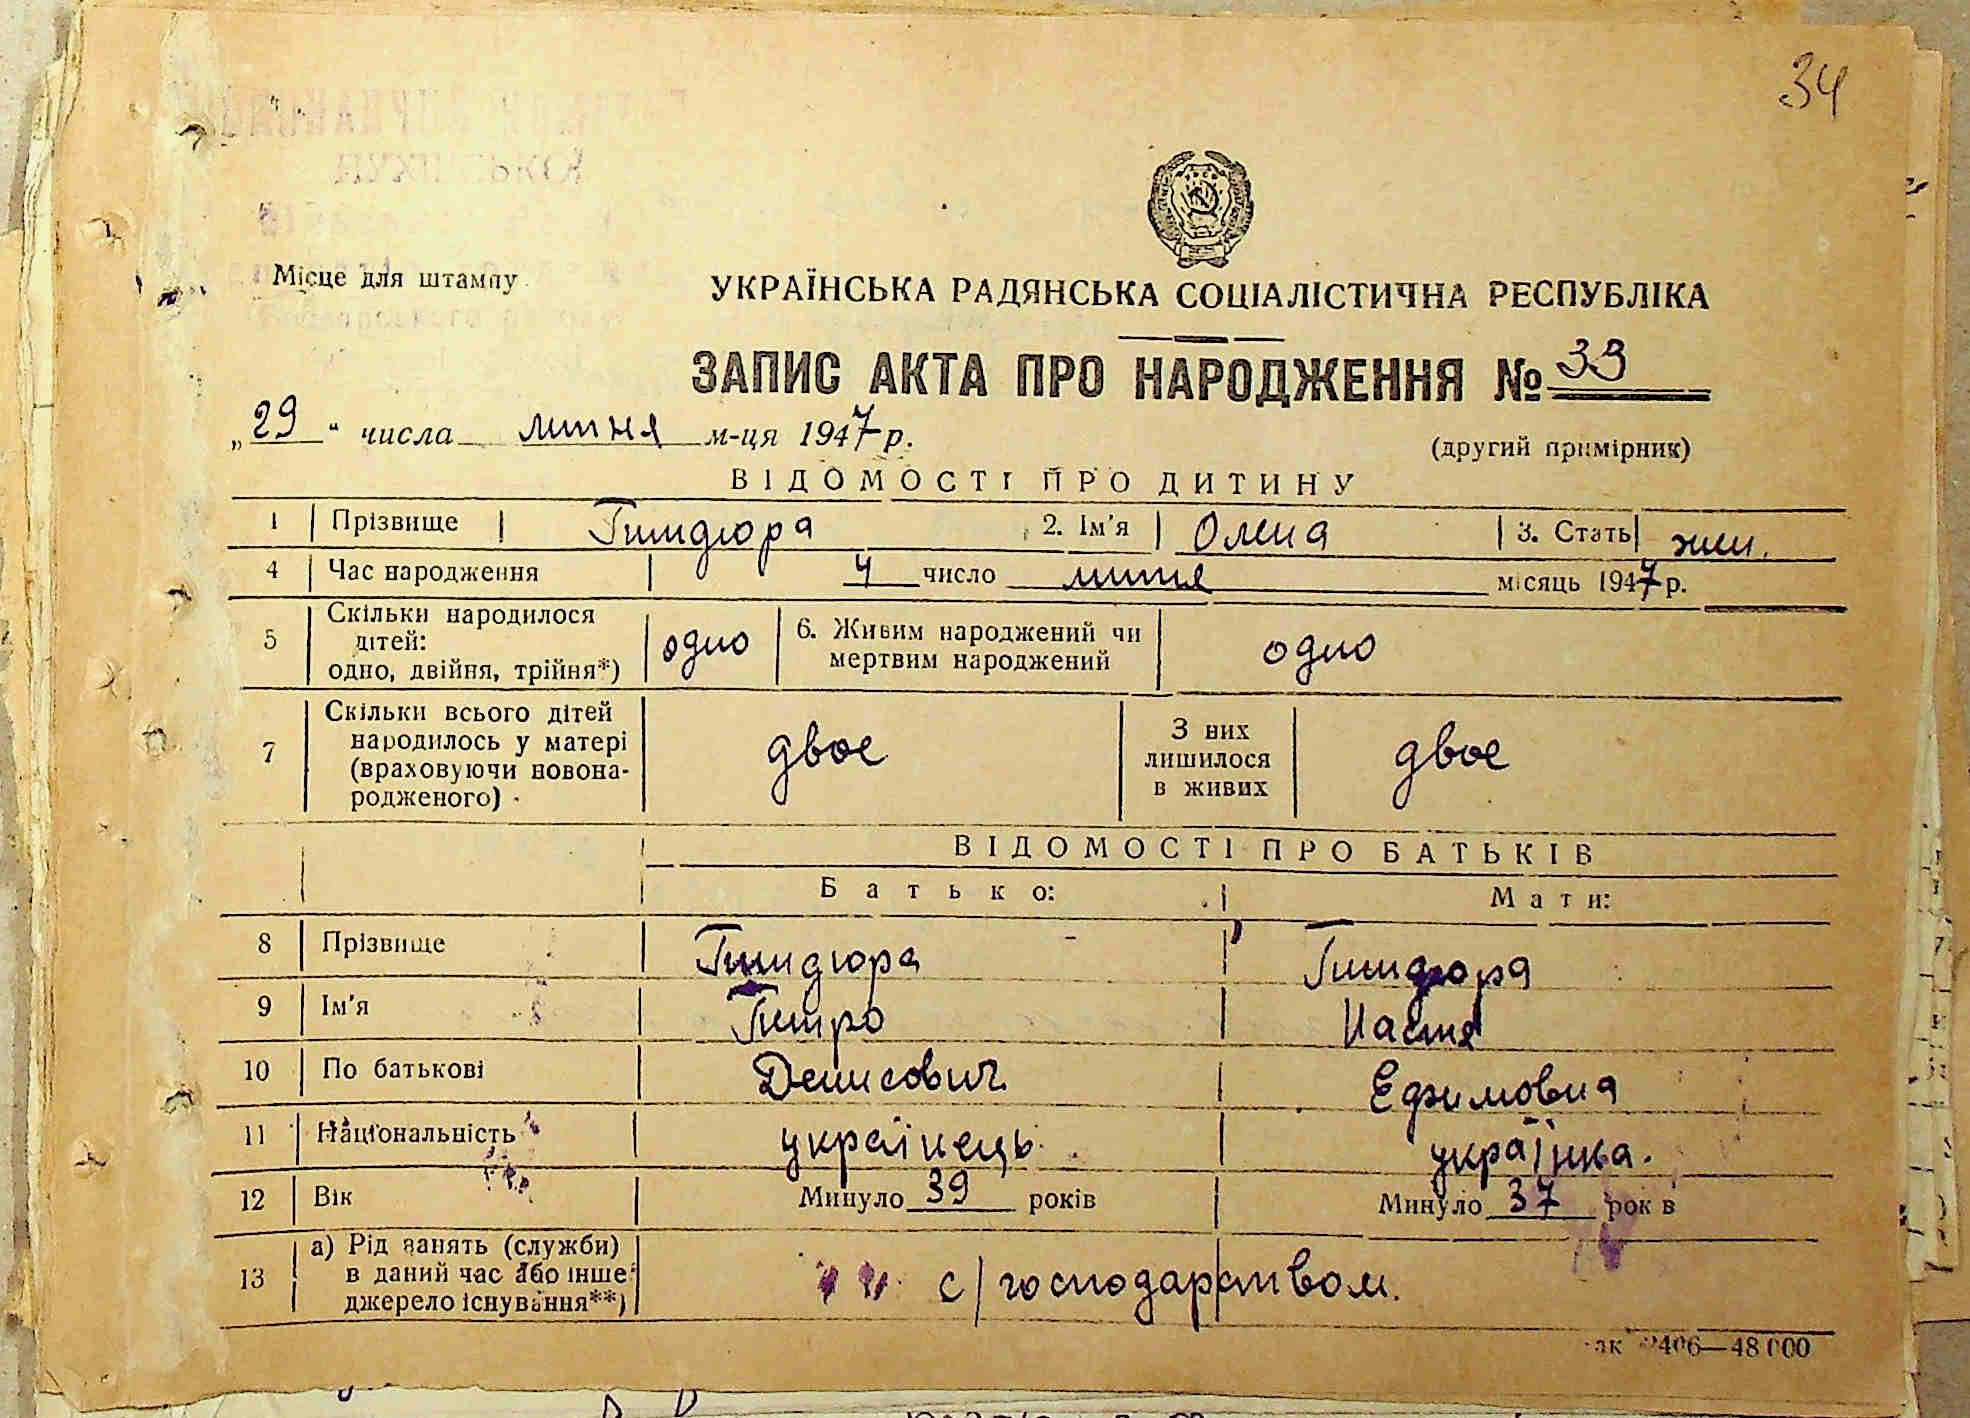 34
Місце для штампу
УКРАЇНСЬКА РАДЯНСЬКА СОЦІАЛІСТИЧНА РЕСПУБЛІКА
ЗАПИС АКТА ПРО НАРОДЖЕННЯ № 33
„29“ числа липня м-ця 1947 р.
(другий примірник)
ВІДОМОСТІ ПРО ДИТИНУ
1 Прізвище Гиндюра 2. Ім'я Олена 3. Стать жін.
4 Час народження 4 число липня місяць 1947 р.
5 Скільки народилося дітей: одно, двійня, трійня*) одно 6. Живим народжений чи мертвим народжений одно
7 Скільки всього дітей народилось у матері (враховуючи новонародженого) двое З них лишилося в живих двое
ВІДОМОСТІ ПРО БАТЬКІВ
Батько: Мати:
8 Прізвище Гиндюра Гиндюра
9 Ім'я Петро Настя
10 По батькові Денисович Ефимовна
11 Національність українець українка.
12 Вік Минуло 39 років Минуло 37 років
13 а) Рід занять (служби) в даний час або інше джерело існування**) с/господарством.
2406—48 000